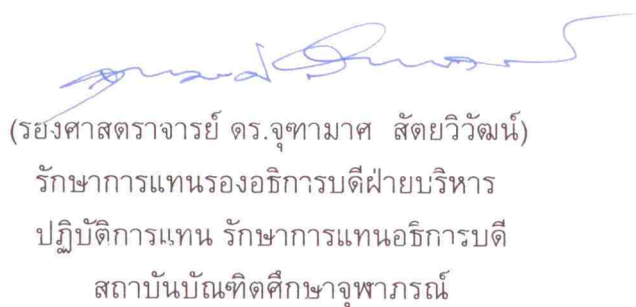 (รองศาสตราจารย์ ดร.จุฑามาศ  สัตยวิวัฒน์)
รักษาการแทนรองอธิการบดีฝ่ายบริหาร
ปฏิบัติการแทน รักษาการแทนอธิการบดี
สถาบันบัณฑิตศึกษาจุฬาภรณ์